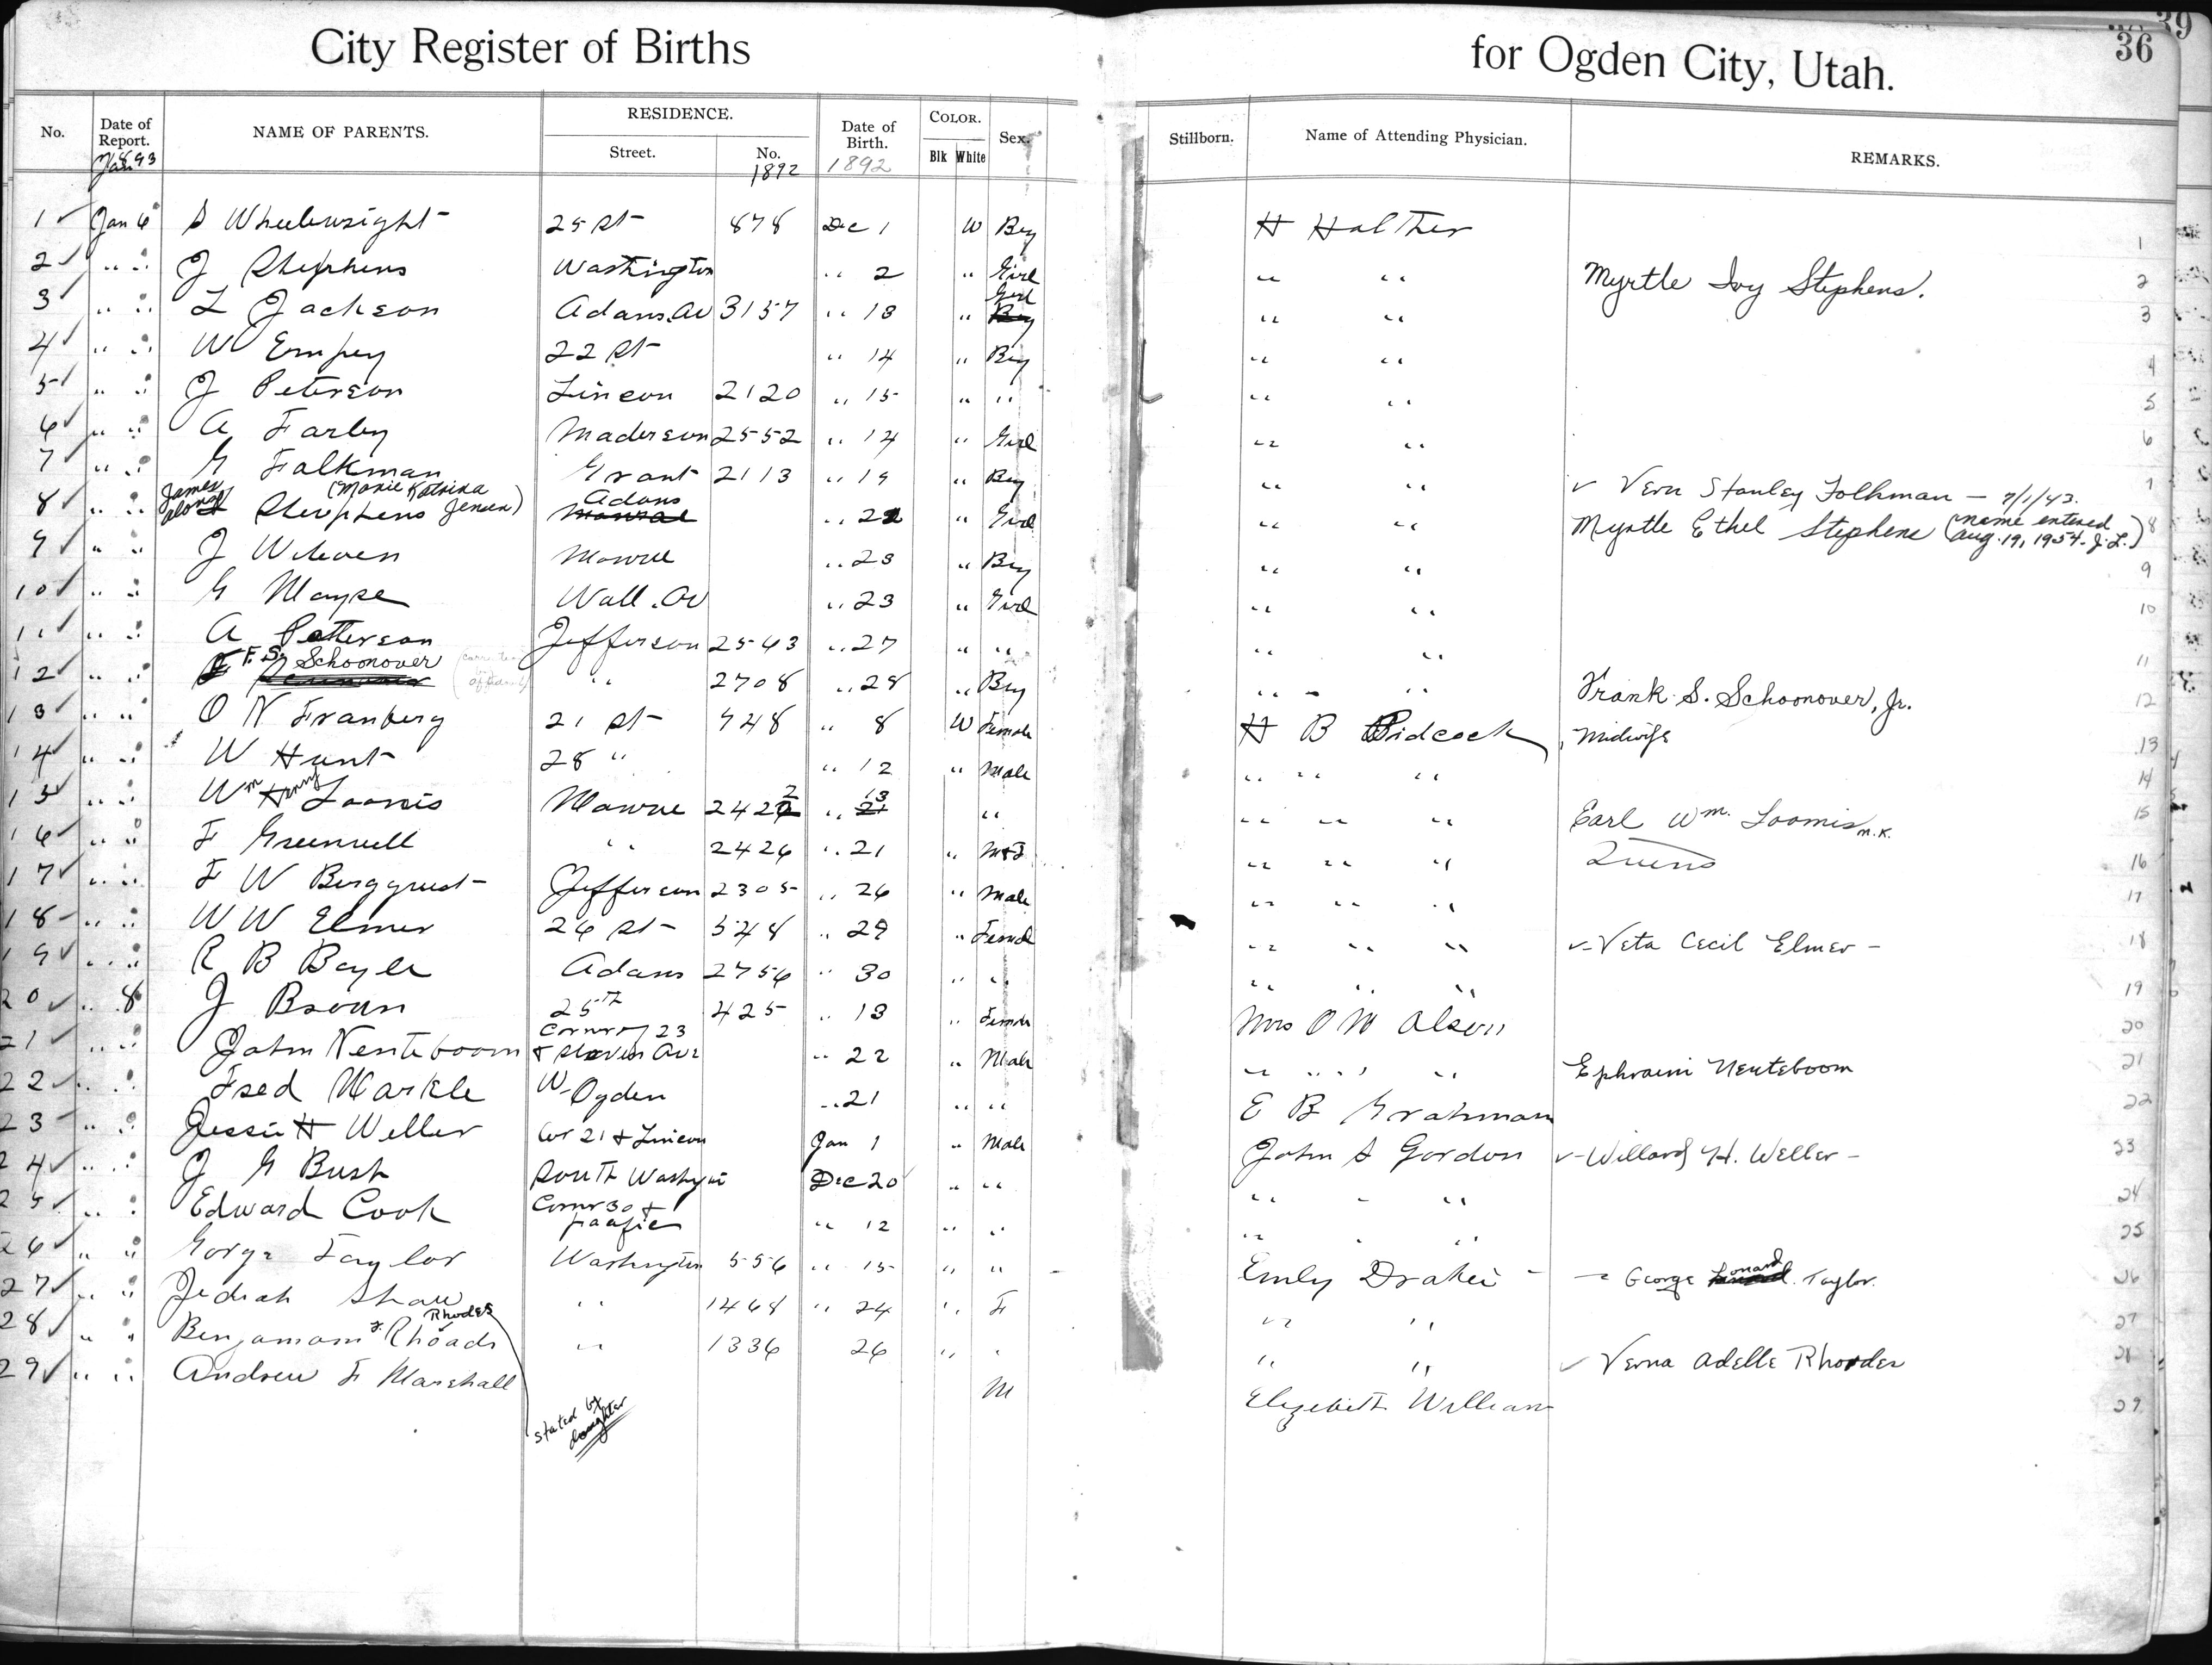 City Register of Births for Ogden City, Utah.
36
39
No. Date of Report. NAME OF PARENTS. RESIDENCE. Street. No. Date of Birth. COLOR. Blk White Sex. Stillborn. Name of Attending Physician. REMARKS.
1893 Jan 1892 1892
1 Jan 6 S Wheelwright 25 St 878 Dec 1 W Boy H Halther 1
2 " " J Stephens Washington " 2 " Girl " " Myrtle Ivy Stephens. 2
3 " " L Jackson Adams Av 3157 " 13 " Girl Boy " " 3
4 " " W Empey 22 St " 14 " Boy " " 4
5 " " J Peterson Lincon 2120 " 15 " " " " 5
6 " " A Farley Maderson 2552 " 14 " Girl " " 6
7 " " G Folkman Grant 2113 " 19 " Boy " " Vern Stanley Folkman — 7/1/43. 7
8 " " James Alonzo Stephens (Marie Katrina Jensen) Adams Monroe " 22 " Girl " " Myrtle Ethel Stephens (name entered Aug. 19, 1954. J.L.) 8
9 " " J Monroe " 23 " Boy " " 9
10 " " G Wall Av " 23 " Girl " " 10
11 " " A Patterson Jefferson 2563 " 27 " " " " 11
12 " " F. S. Schoonover " 2708 " 28 " Boy " " Frank S. Schoonover, Jr. 12
13 " " O N Franberg 21 St 748 " 8 W Female H B Pidcock, Midwife 13
14 " " W Hunt 28 " " 12 " Male " " " 14
15 " " Wm Henry Loomis Monroe 2422 " 13 21 " " " " Earl Wm. Loomis M.K. 15
16 " " F Greenwell " 2426 " 21 " M&F " " " 16
17 " " F W Berggrust Jefferson 2305 " 26 " Male " " " 17
18 " " W W Elmer 26 St 548 " 29 " Female " " " Veta Cecil Elmer - 18
19 " " R B Boyle Adams 2756 " 30 " " " " " 19
20 " 8 J Brown 25th 425 " 13 " Female Mrs O M Olson 20
21 " " John Nenteboom Corner of 23 & Ave " 22 " Male " " " " Ephraim Neuteboom 21
22 " " Fred Markle W Ogden " 21 " " E B Grahman 22
23 " " Jessie H Weller Cor 21 & Lincon Jan 1 " Male John S Gordon Willard H. Weller - 23
24 " " J G Bush South Washington Dec 20 " " " " " 24
25 " " Edward Cook Corner 30 & pacific " 12 " " " " " 25
26 " " Gorge Taylor Washington 556 " 15 " " Emly Drakei George Lonard Taylor. 26
27 " " Jediah Shaw " 1468 " 24 " F " " 27
28 " " Benjamam F. Rhoads Rhodes " 1336 26 " " " " Verna Adelle Rhodes 28
29 " " Andrew F Marshall M Elizebeth William 29
stated by daughter